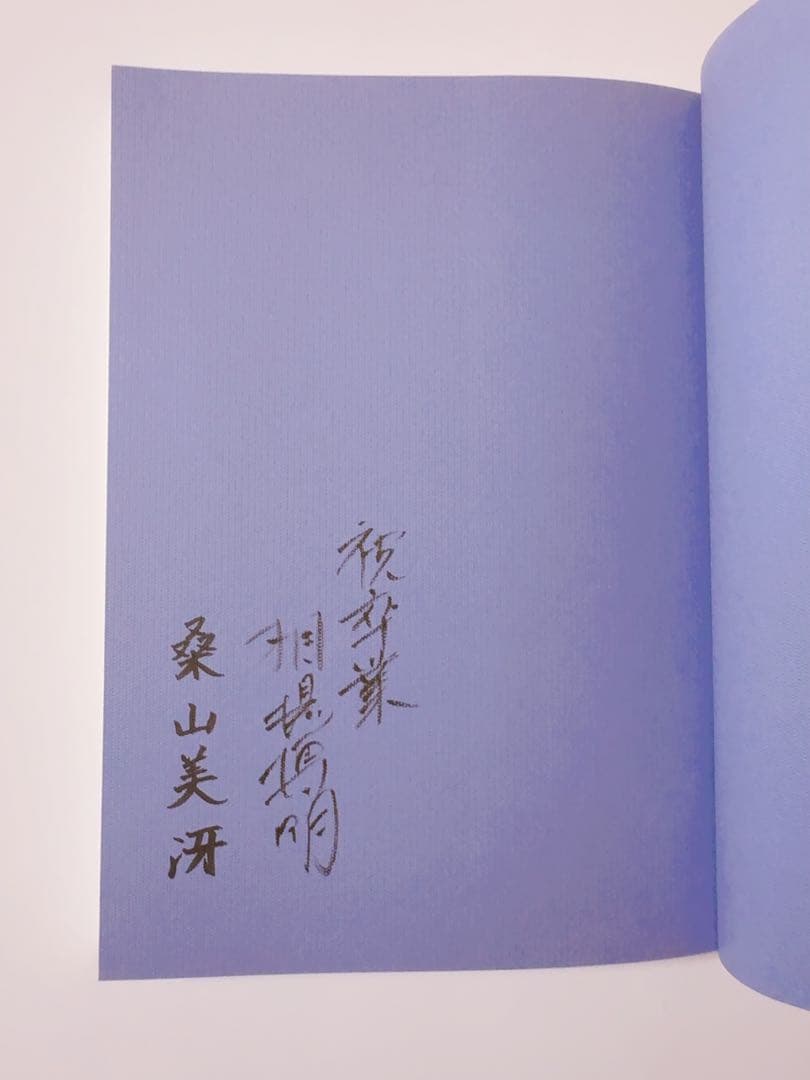 祝卒業
相場博明
桑山美冴